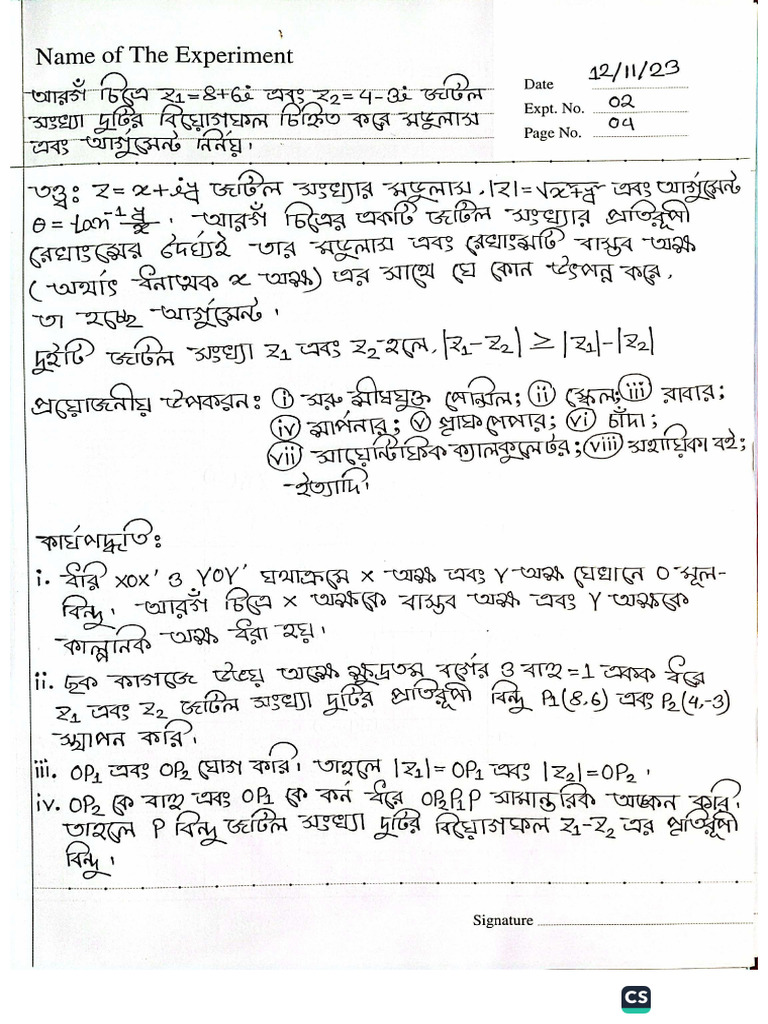 Name of The Experiment
আরগাঁ চিত্রে z₁=8+6i এবং z₂=4-3i জটিল
সংখ্যা দুটির বিয়োগফল চিহ্নিত করে মডুলাস
এবং আর্গুমেন্ট নির্নয়।
Date 12/11/23
Expt. No. 02
Page No. 04
তত্ত্ব: z=x+iy জটিল সংখ্যার মডুলাস, |z|=√x²+y² এবং আর্গুমেন্ট
θ=tan⁻¹ y/x । আরগাঁ চিত্রের একটি জটিল সংখ্যার প্রতিরূপী
রেখাংশের দৈর্ঘ্যই তার মডুলাস এবং রেখাংশটি বাস্তব অক্ষ
(অর্থাৎ ধনাত্মক x অক্ষ) এর সাথে যে কোন উৎপন্ন করে,
তা হচ্ছে আর্গুমেন্ট।
দুইটি জটিল সংখ্যা z₁ এবং z₂ হলে, |z₁-z₂| ≥ |z₁|-|z₂|
প্রয়োজনীয় উপকরন: (i) সরু শীষযুক্ত পেন্সিল; (ii) স্কেল; (iii) রাবার;
(iv) সার্পনার; (v) গ্রাফ পেপার; (vi) চাঁদা;
(vii) সায়েন্টিফিক ক্যালকুলেটর; (viii) সহায়িকা বই;
ইত্যাদি।
কার্যপদ্ধতি:
i. ধরি XOX' ও YOY' যথাক্রমে X অক্ষ এবং Y অক্ষ যেখানে O মূল-
বিন্দু। আরগাঁ চিত্রে X অক্ষকে বাস্তব অক্ষ এবং Y অক্ষকে
কাল্পনিক অক্ষ ধরা হয়।
ii. ছক কাগজে উভয় অক্ষে ক্ষুদ্রতম বর্গের 3 বাহু=1 একক ধরে
z₁ এবং z₂ জটিল সংখ্যা দুটির প্রতিরূপী বিন্দু P₁(8,6) এবং P₂(4,-3)
স্থাপন করি।
iii. OP₁ এবং OP₂ যোগ করি। তাহলে |z₁|=OP₁ এবং |z₂|=OP₂ ।
iv. OP₂ কে বাহু এবং OP₁ কে কর্ন ধরে OP₂P₁P সামান্তরিক অঙ্কন করি।
তাহলে P বিন্দু জটিল সংখ্যা দুটির বিয়োগফল z₁-z₂ এর প্রতিরূপী
বিন্দু।
Signature
CS